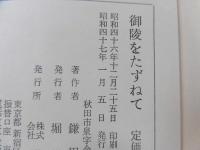 御陵をたずねて
定価
昭和四十六年十二月二十五日 印刷
昭和四十七年一月五日 発行
秋田市泉字
著作者 鎌田
発行者 堀
発行所 株式会社
東京都新宿
振替口座 東
電話 東京